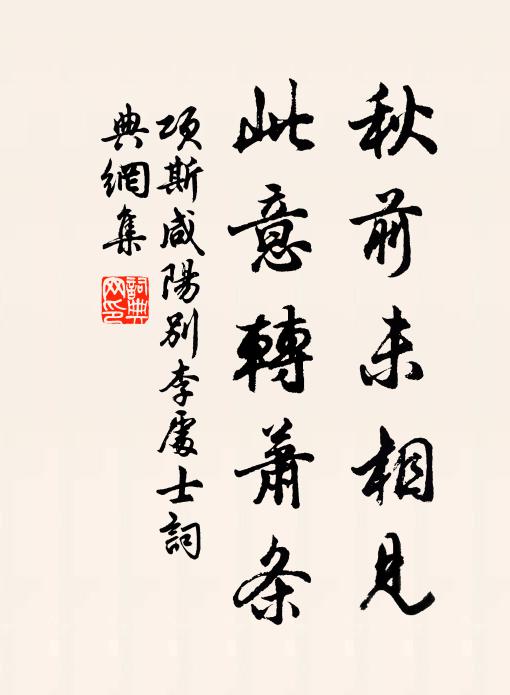 秋前未相見
此意轉蕭条
項斯咸陽别李處士詞
典網集
詞典
网印